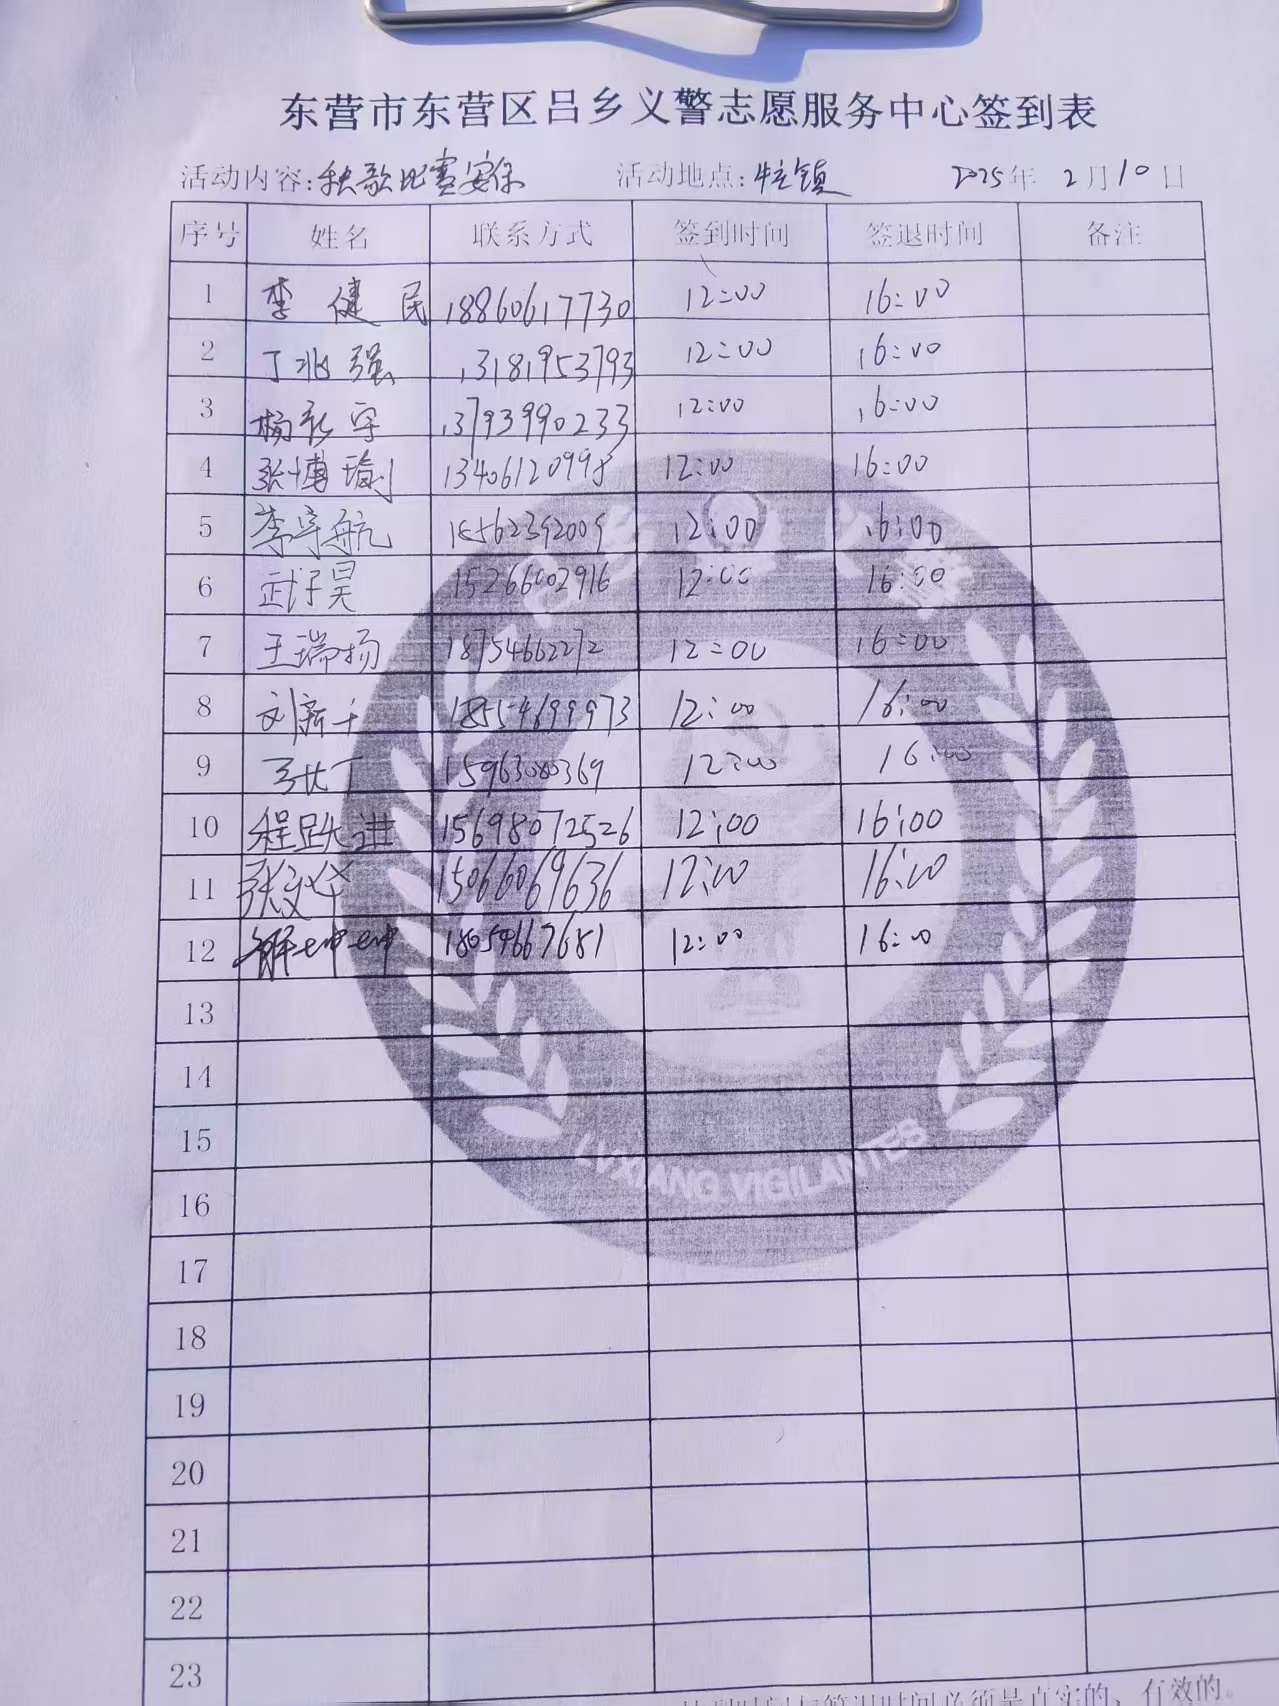 东营市东营区吕乡义警志愿服务中心签到表
活动内容:秧歌比赛安保 活动地点:牛庄镇 2025年 2月10日
序号 姓名 联系方式 签到时间 签退时间 备注
1 李健民 18860617730 12:00 16:00
2 丁兆强 13181953793 12:00 16:00
3 杨 宇 13793990233 12:00 16:00
4 张博瑜 13406120998 12:00 16:00
5 李宇航 15562392009 12:00 16:00
6 武子昊 15266002916 12:00 16:00
7 王瑞扬 18754662272 12:00 16:00
8 刘新 18554699973 12:00 16:00
9 15963080369 12:00 16:00
10 程跃进 15698072526 12:00 16:00
11 张文华 15066069636 12:00 16:00
12 解坤坤 18054667681 12:00 16:00
13
14
15
16
17
18
19
20
21
22
23
LVXIANG VIGILANTES
时间与签退时间必须是真实的、有效的。